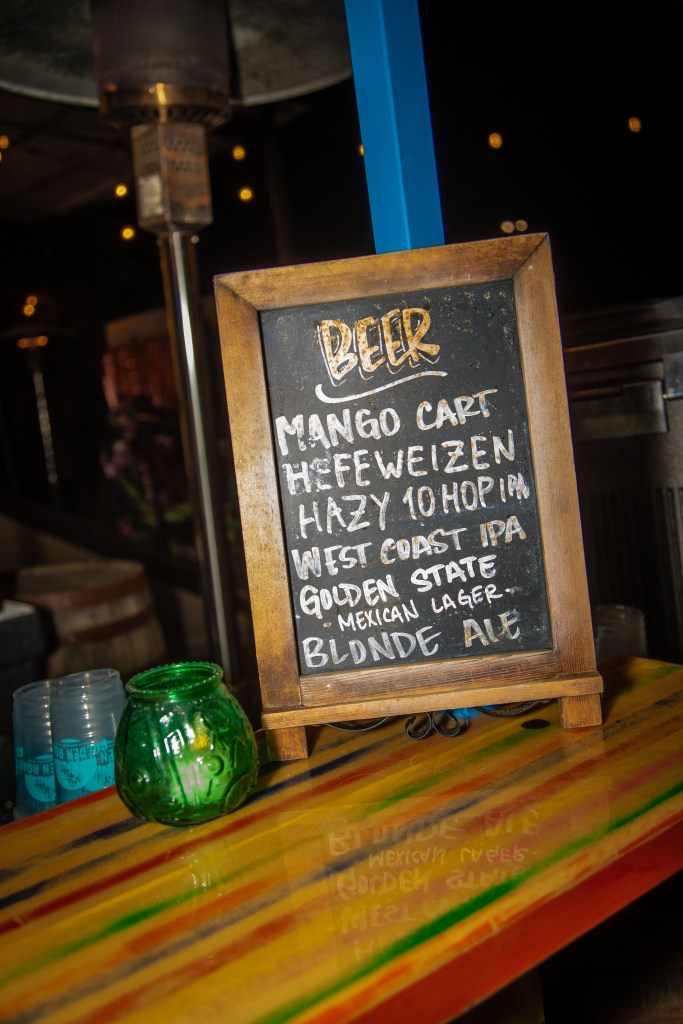 BEER
MANGO CART
HEFEWEIZEN
HAZY 10 HOP IPA
WEST COAST IPA
GOLDEN STATE
MEXICAN LAGER-
BLONDE ALE